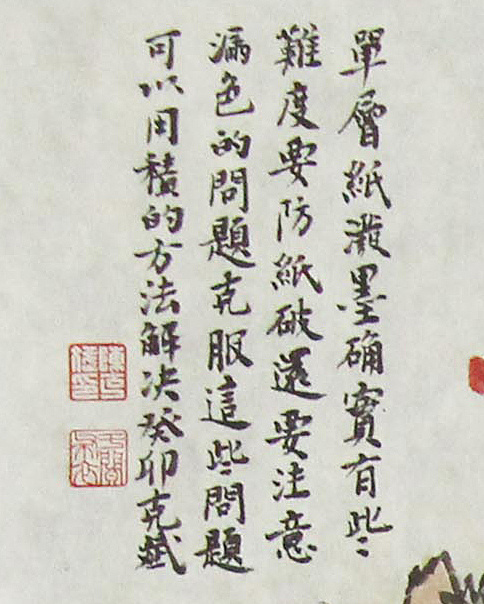 單層紙潑墨确實有些
難度要防紙破還要注意
漏色的問題克服這些問題
可以用積的方法解决癸卯克斌